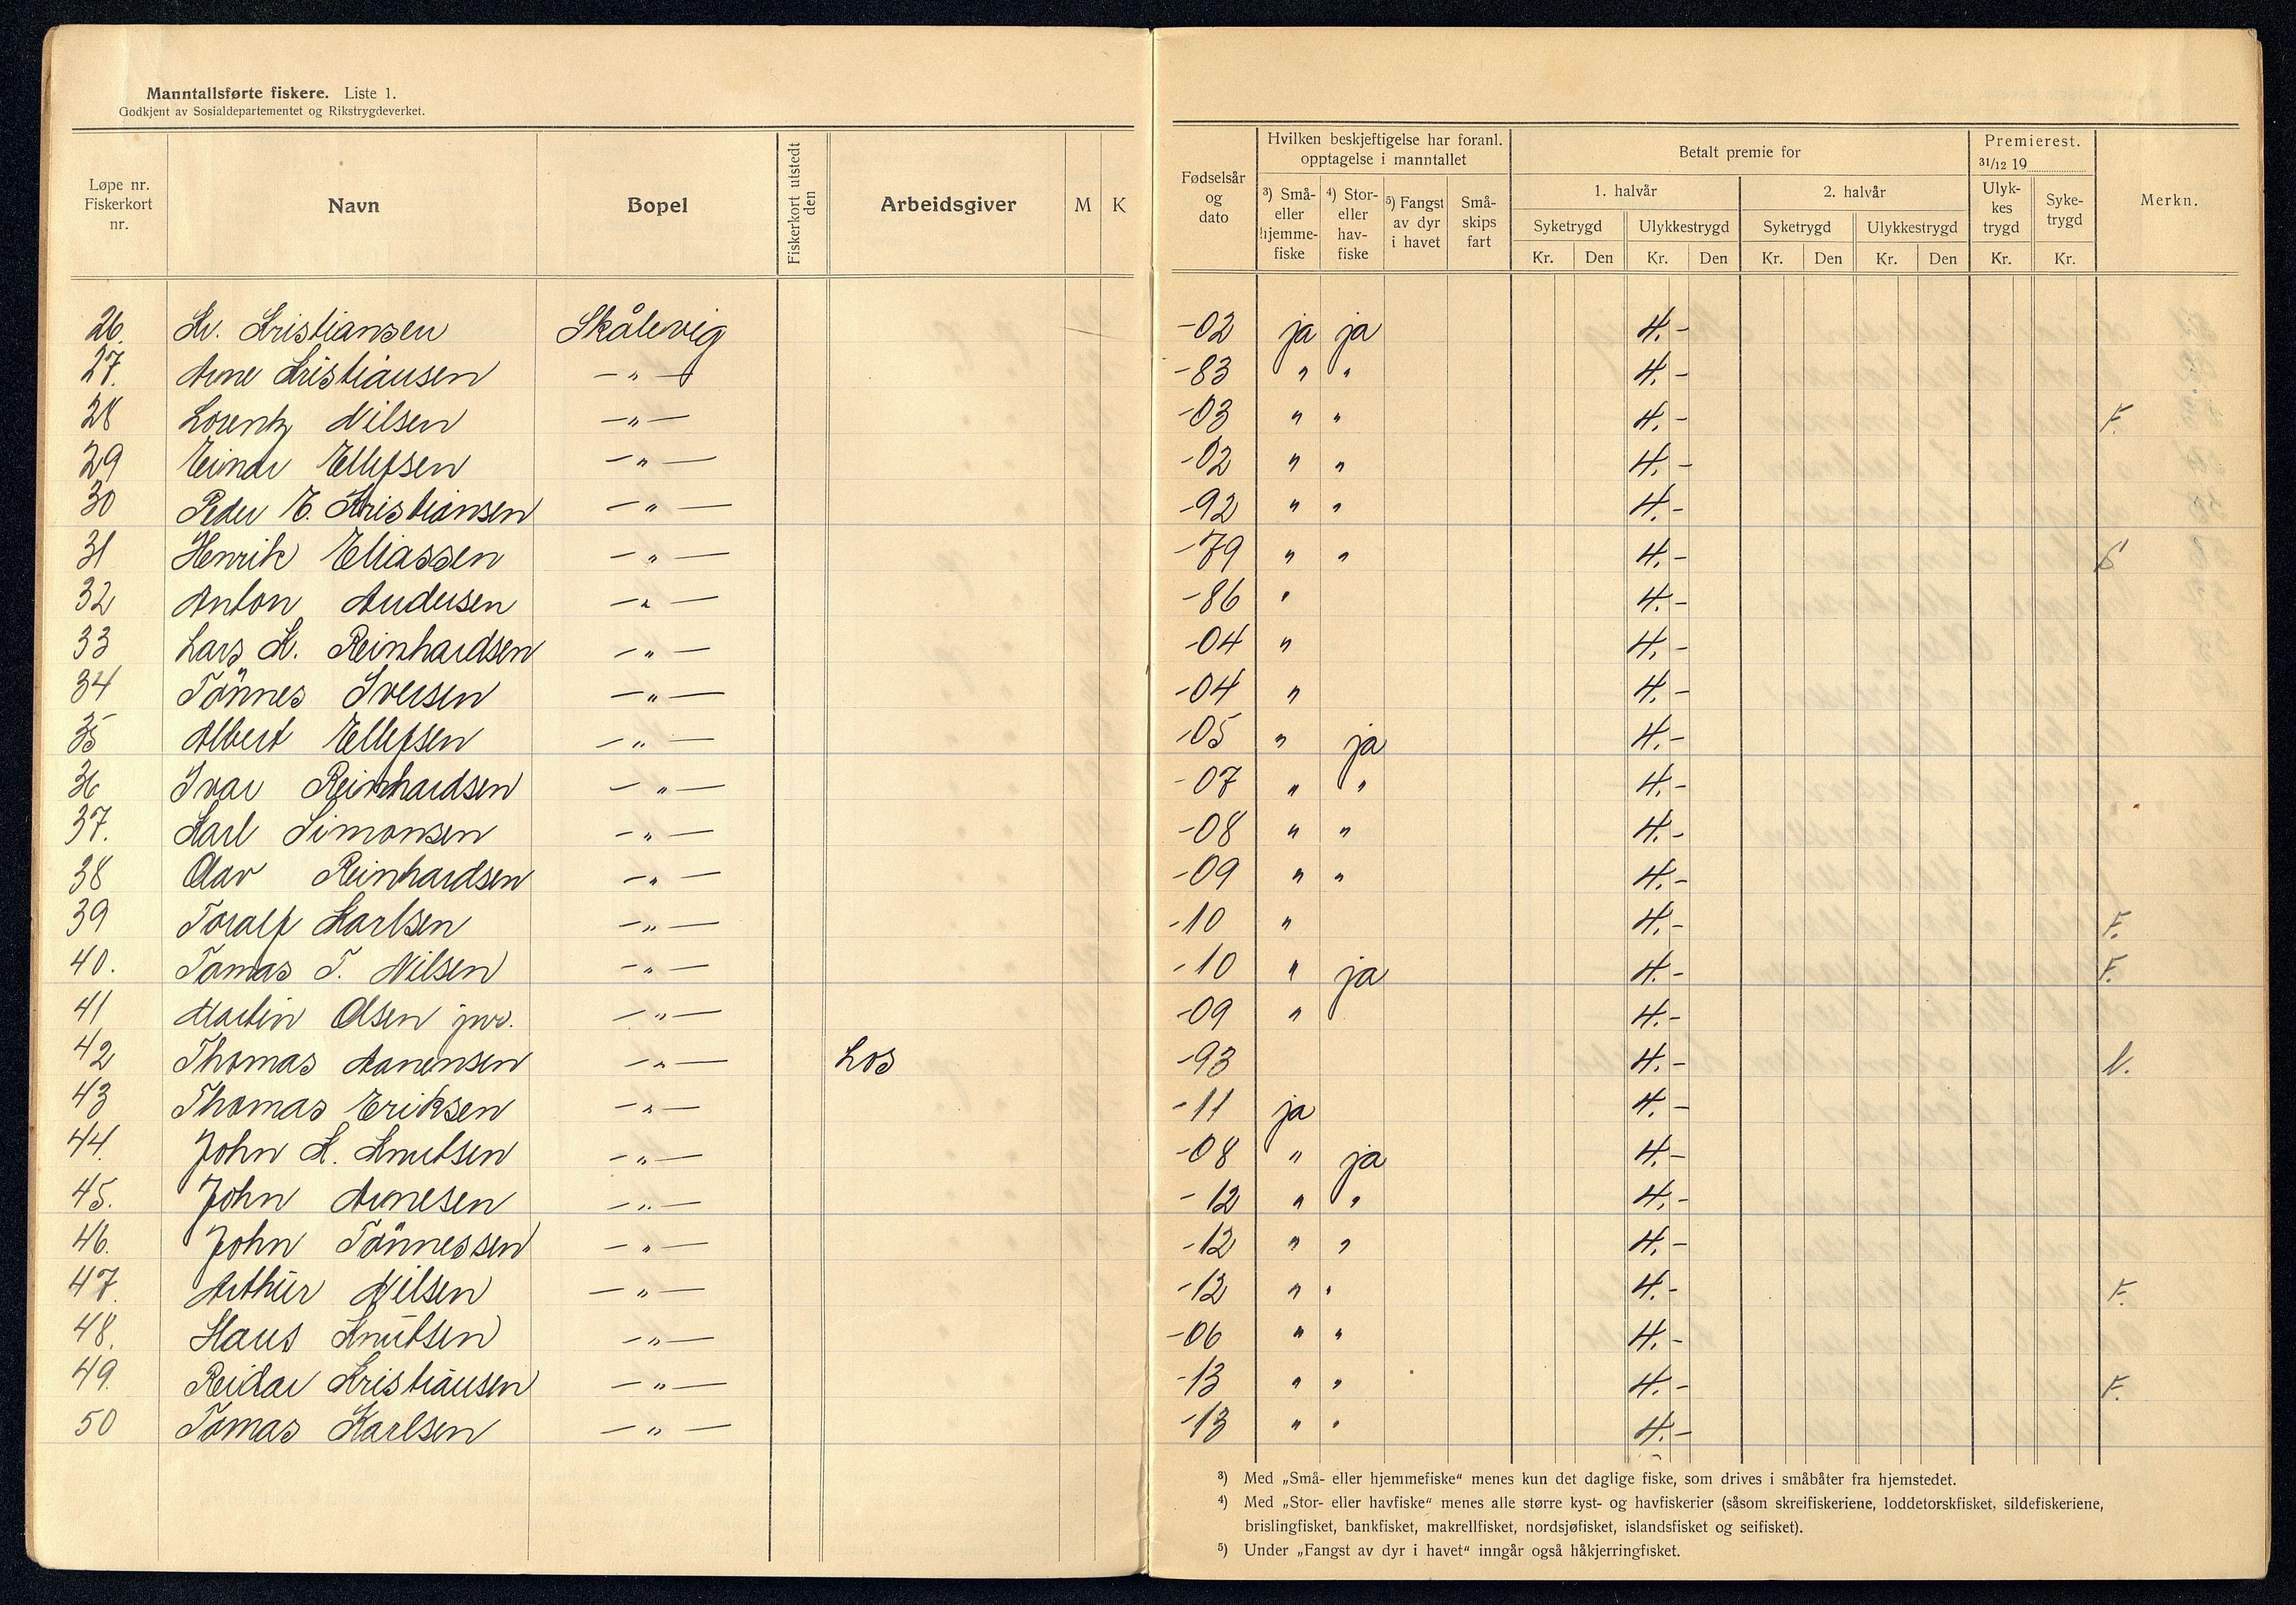 Manntallsførte fiskere. Liste 1.
Godkjent av Sosialdepartementet og Rikstrygdeverket.
Løpe nr. Fiskerkort nr. Navn Bopel Fiskerkort utstedt den Arbeidsgiver M K
Fødselsår og dato
Hvilken beskjeftigelse har foranl. opptagelse i manntallet
³) Små- eller hjemme- fiske ⁴) Stor- eller hav- fiske ⁵) Fangst av dyr i havet Små- skips fart
Betalt premie for
1. halvår 2. halvår
Syketrygd Ulykkestrygd Syketrygd Ulykkestrygd
Kr. Den Kr. Den Kr. Den Kr. Den
Premierest. 31/12 19
Ulyk- kes trygd Syke- trygd
Kr. Kr.
Merkn.
26. Kr. Kristiansen Skålevig -02 ja ja 4.-
27. Arne Kristiansen -"- -83 " " 4.-
28 Lorentz Nilsen -"- -03 " " 4.- F.
29 Einar Ellefsen -"- -02 " " 4.-
30 Peder E. Kristiansen -"- -92 " " 4.-
31 Henrik Eliassen -"- -79 " " 4.- S
32 Anton Andersen -"- -86 " 4.-
33 Lars K. Reinhardsen -"- -04 " 4.-
34 Tönnes Iversen -"- -04 " 4.-
35 Albert Ellefsen -"- -05 " ja 4.-
36 Ivar Reinhardsen -"- -07 " " 4.-
37. Karl Simonsen -"- -08 " " 4.-
38 Olav Reinhardsen -"- -09 " " 4.-
39 Toralf Karlsen -"- -10 " 4.- F.
40. Tomas T. Nilsen -"- -10 " ja 4.- F.
41 Martin Olsen jnr. -"- -09 " 4.-
42 Thomas Aanensen -"- Los -93 4.-
43 Thomas Eriksen -"- -11 ja 4.-
44. John K. Knutsen -"- -08 " ja 4.-
45. John Arnesen -"- -12 " " 4.-
46. John Tönnessen -"- -12 " " 4.-
47. Arthur Nilsen -"- -12 " " 4.- F.
48. Hans Knutsen -"- -06 " " 4.-
49. Reidar Kristiansen -"- -13 " " 4.- F.
50 Tomas Karlsen -"- -13 " " 4.-
³) Med „Små- eller hjemmefiske" menes kun det daglige fiske, som drives i småbåter fra hjemstedet.
⁴) Med „Stor- eller havfiske" menes alle større kyst- og havfiskerier (såsom skreifiskeriene, loddetorskfisket, sildefiskeriene,
brislingfisket, bankfisket, makrellfisket, nordsjøfisket, islandsfisket og seifisket).
⁵) Under „Fangst av dyr i havet" inngår også håkjerringfisket.